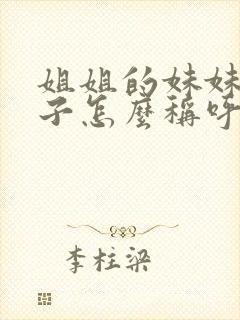 姐姐的妹妹
子怎麼稱呼
李柱梁